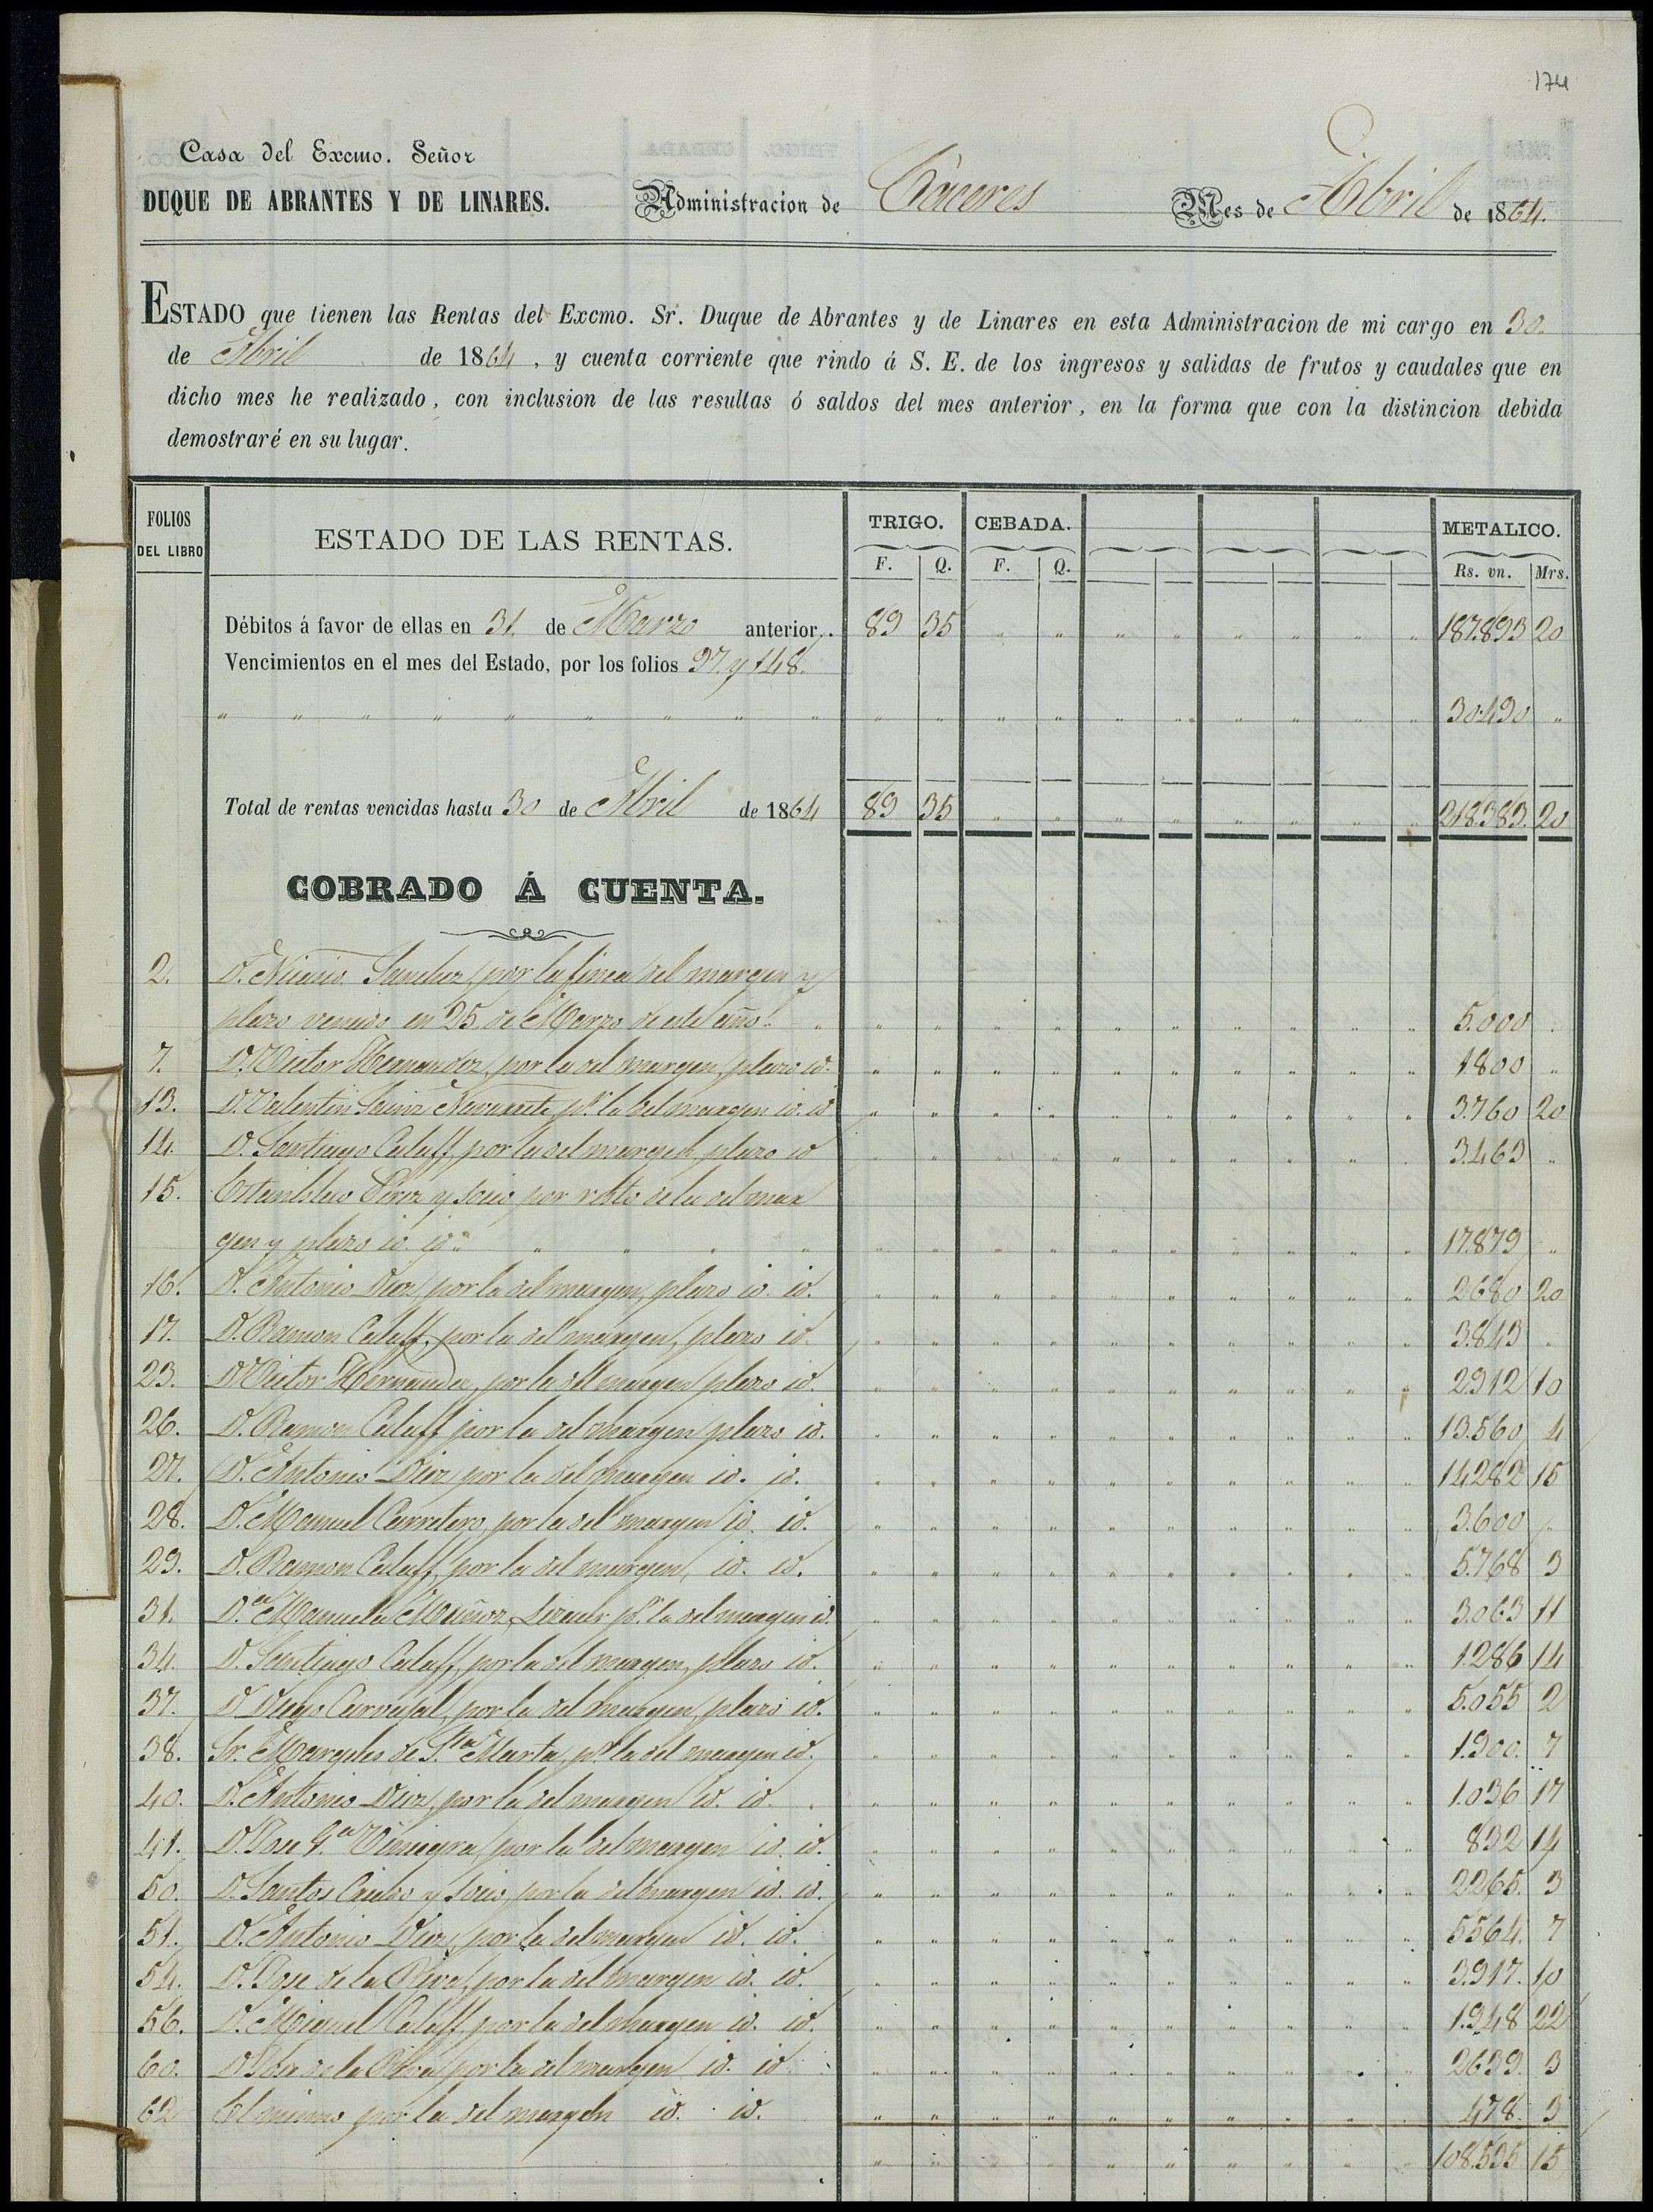 174
Casa del Excmo. Señor
DUQUE DE ABRANTES Y DE LINARES. Administracion de Cáceres Mes de Abril de 1864.
ESTADO que tienen las Rentas del Excmo. Sr. Duque de Abrantes y de Linares en esta Administracion de mi cargo en 30.
de Abril de 1864, y cuenta corriente que rindo á S. E. de los ingresos y salidas de frutos y caudales que en
dicho mes he realizado, con inclusion de las resultas ó saldos del mes anterior, en la forma que con la distincion debida
demostraré en su lugar.
FOLIOS DEL LIBRO ESTADO DE LAS RENTAS. TRIGO. CEBADA. METALICO.
F. Q. F. Q. Rs. vn. Mrs.
Débitos á favor de ellas en 31. de Marzo anterior. 89 35 187.893 20
Vencimientos en el mes del Estado, por los folios 97. y 148.
30.490 "
Total de rentas vencidas hasta 30 de Abril de 1864 89 35 218.383. 20
COBRADO Á CUENTA.
2. D. Nicasio Sanchez, por la finca del margen y
plazo vencido en 25 de Marzo de este año. 5.000 "
7. D. Victor Hernandez, por la del margen, plazo id. 1.800 "
13. D. Valentin Sainz Navarrete pr. la del margen id. id 3.760 20
14. D. Santiago Calaff, por la del margen plazo id 3.463 "
15. Estanislao Perez y socio por resto de la del mar
gen y plazo id. id. 17.879 "
16. D. Antonio Diez, por la del margen, plazo id. id. 2680 20
17. D. Ramon Calaff, por la del margen, plazo id. 3.843 "
23. D. Victor Hernandez, por la del margen plazo id. 2.912 10
26. D. Ramon Calaff por la del margen plazo id. 13.560 4
27. D. Antonio Diez por la del margen id. id. 14.282 15
28. D. Manuel Carretero, por la del margen id. id. 3.600 "
29. D. Ramon Calaff, por la del margen, id. id. 5.768 3
31. D.ª Manuela Muñoz, pr. la del margen id. 3.063 11
34. D. Santiago Calaff, por la del margen, plazo id. 1.286 14
37. D Diego Carvajal, por la del margen, plazo id. 5.055 2
38. Sr. Marqués de Sta. Marta, pr. la del margen id. 1.900. 7
40. D. Antonio Diez, por la del margen id. id. 1.036 17
41. D. Jose Ga. Viniegra, por la del margen id. id. 832 14
50. D. Santos y socio, por la del margen id. id. 2265. 3
51. D. Antonio Diez, por la del margen id. id. 5564. 7
54. D. Jose de la Riva, por la del margen id. id. 3.917. 10
56. D. Miguel Calaff, por la del margen id. id. 1.948 22
60. D Jose de la Riva, por la del margen id. id. 2639. 3
62 El mismo por la del margen id. id. 478. 3
108.535 15